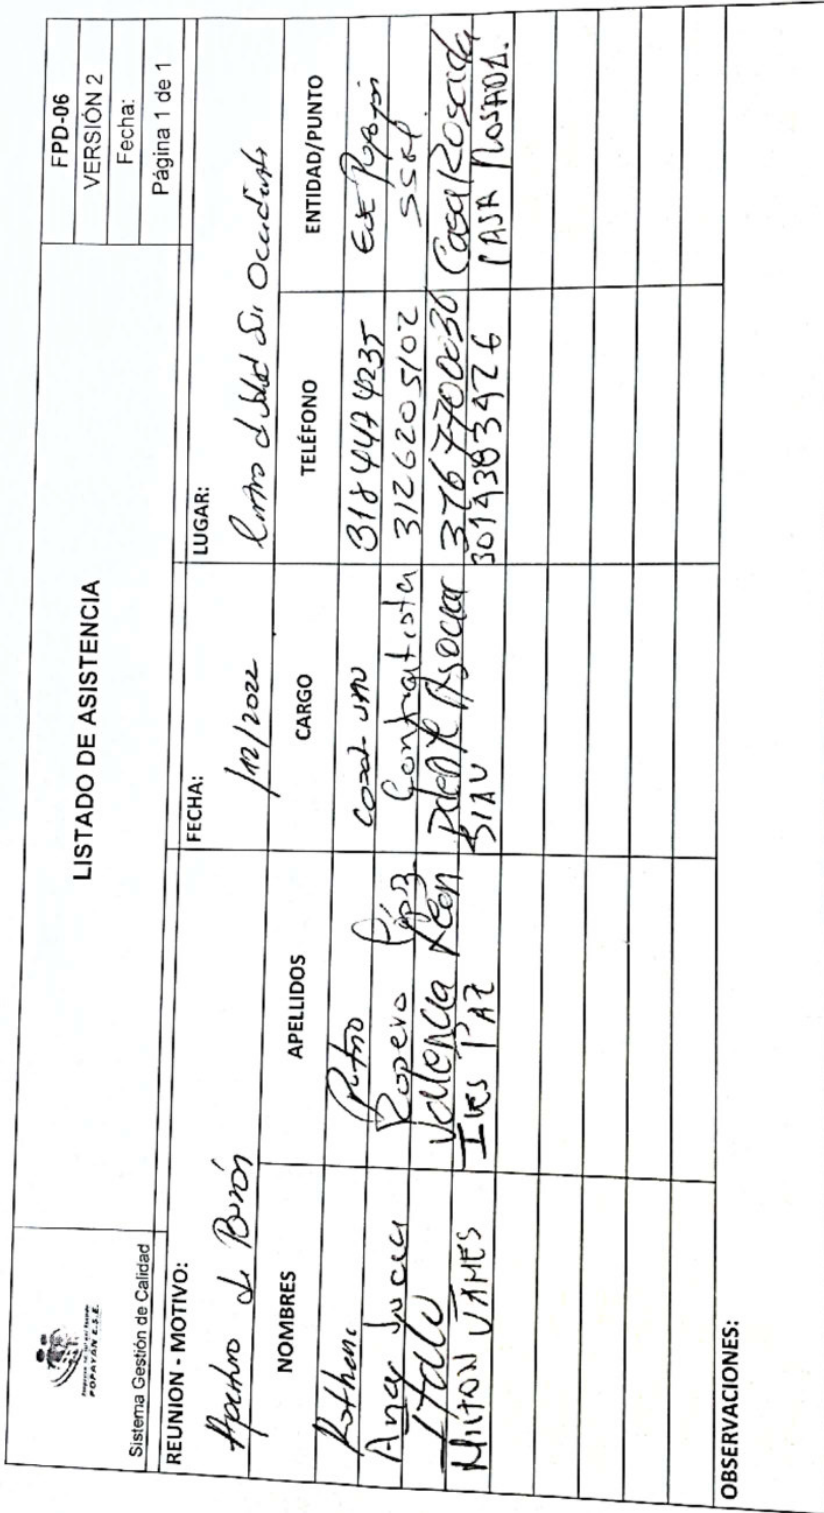 POPAYÁN E.S.E.
Sistema Gestión de Calidad
LISTADO DE ASISTENCIA
FPD-06
VERSIÓN 2
Fecha:
Página 1 de 1
REUNION - MOTIVO:
FECHA:
LUGAR:
Apertura de Buzón
/12/2022
Centro d Salud Sur Occidente
NOMBRES APELLIDOS CARGO TELÉFONO ENTIDAD/PUNTO
Patiño 3184474235 ESE Popayán
Ana Lucia Ropero Contratista 3126205102 SSM
Italo Valencia Leon Asociar 3767700030 Casa Rosada
MILTON JAMES PAZ SIAU 3014383926 CASA ROSADA.
OBSERVACIONES: